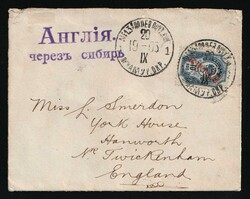 Англія.
черезъ сибирь
29
IX
1
Miss L. Smerdon
York House
Hanworth
Nr. Twickenham
England